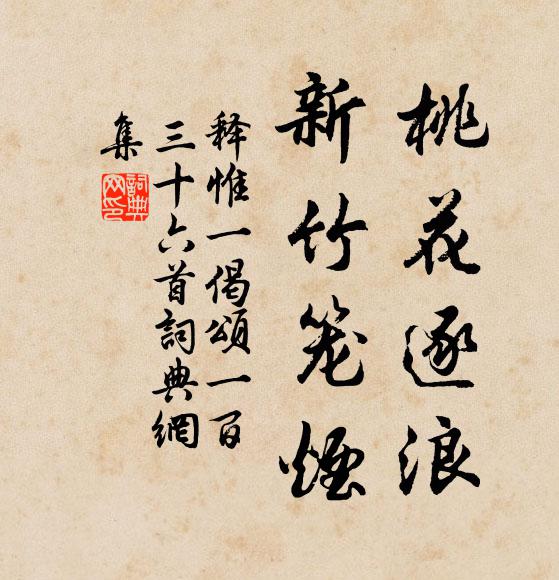 桃花逐浪
新竹笼烟
释惟一偈颂一百
三十六首詞典網
集
詞典网印